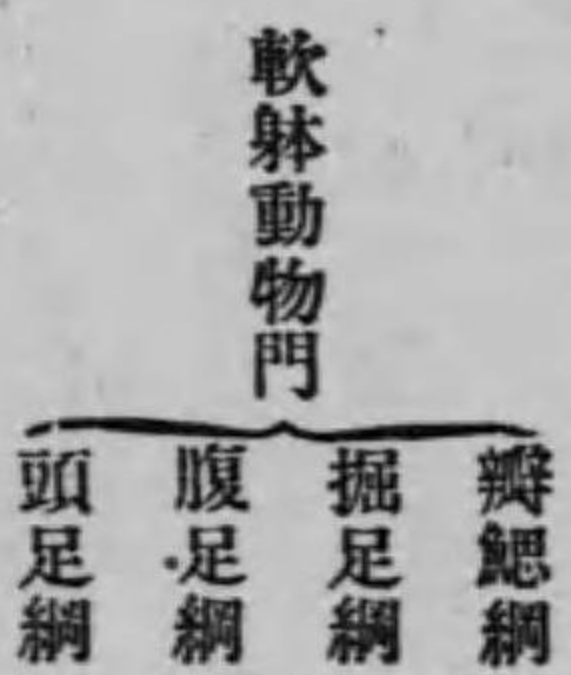 軟躰動物門
瓣鰓綱
掘足綱
腹足綱
頭足綱